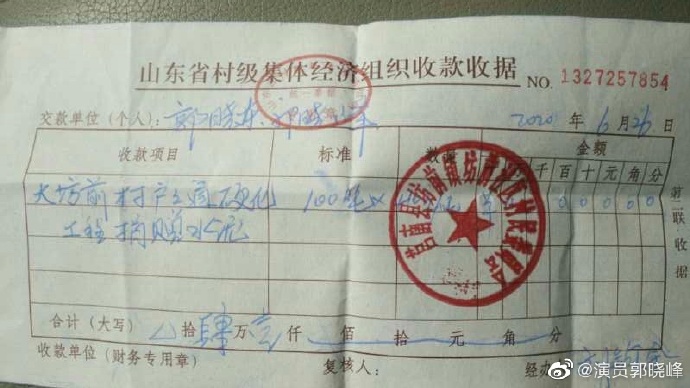 山东省村级集体经济组织收款收据 NO. 1327257854
交款单位(个人): 郭晓东 郭晓峰 2020 年 6 月 26 日
收款项目 标准 数 金额
千 百 十 元 角 分
大坊前村户户通硬化 100吨 0 0 0 0 0
工程捐赠水泥
合计(大写) 拾 肆 万 仟 佰 拾 元 角 分
收款单位(财务专用章) 复核人: 经办
第二联 收据
莒南县坊前镇坊前
@演员郭晓峰